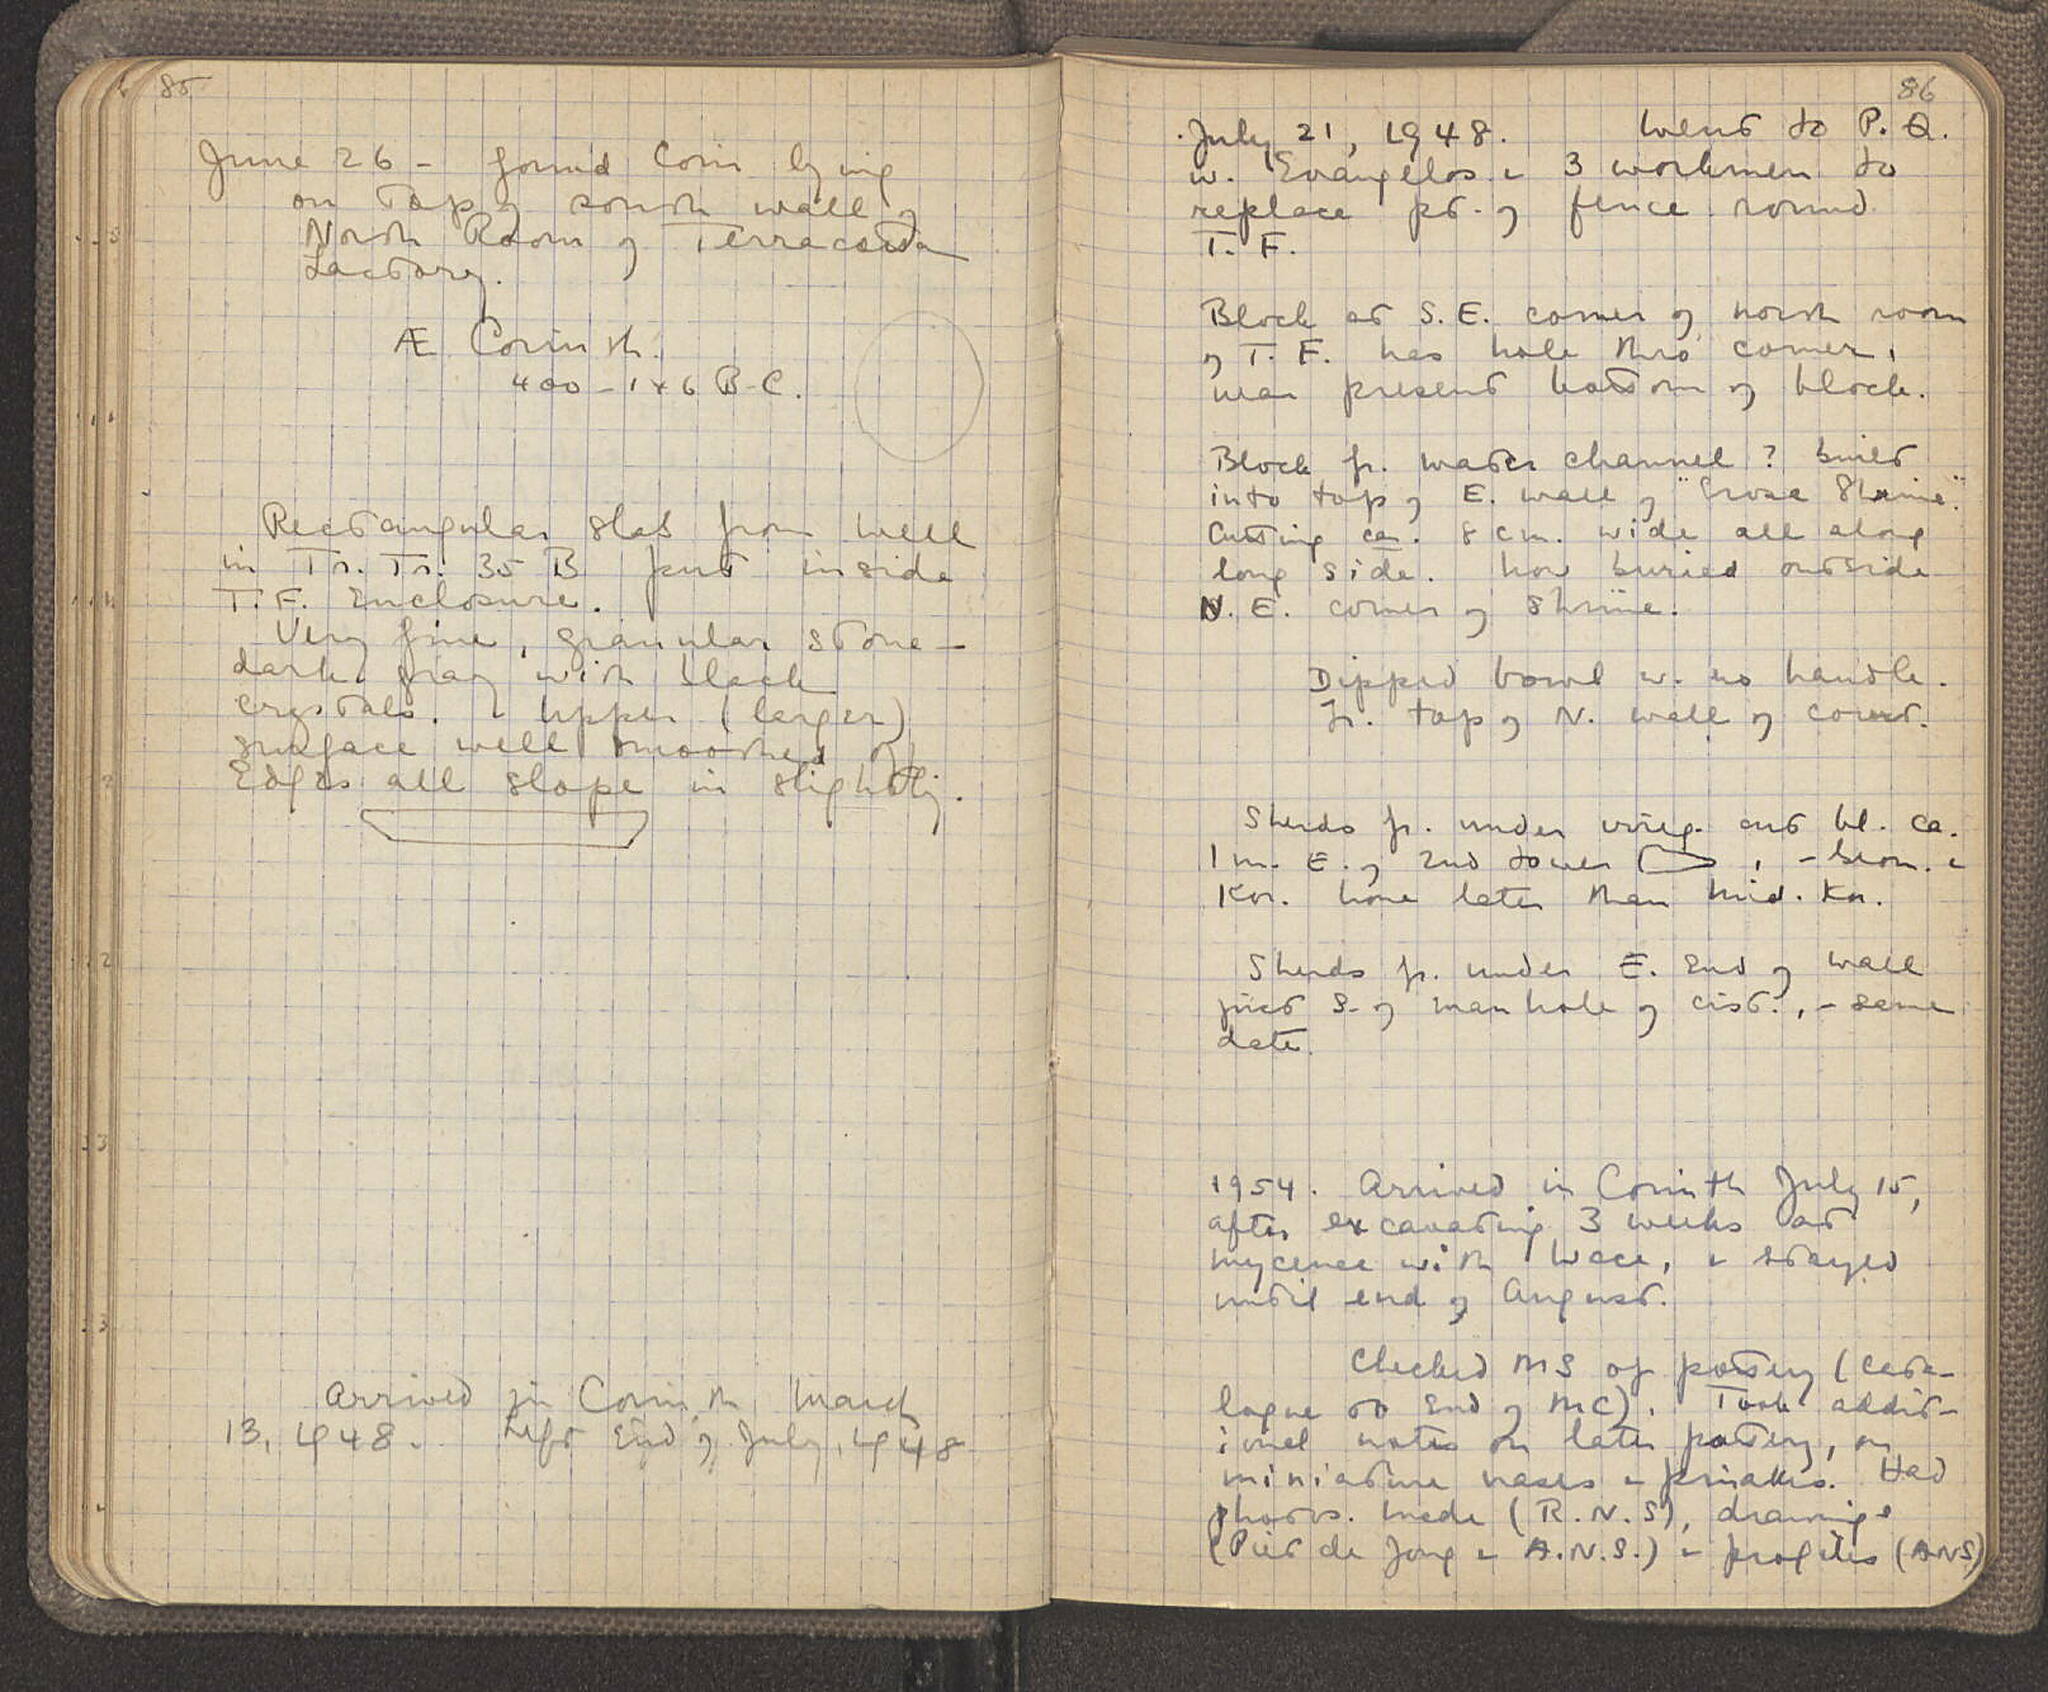 85
June 26 - found coin lying
on top of south wall of
North Room of Terracotta
Factory.
Æ Corinth.
400 - 146 B.C.
Rectangular slab from well
in Tr. Tr. 35 B put inside
T. F. Enclosure.
Very fine, granular stone -
dark gray with black
crystals. Upper (larger)
surface well smoothed off
Edges all slope in slightly.
Arrived in Corinth March
13, 1948. Left End of July, 1948
86
July 21, 1948. Went to P. Q.
w. Evangelos & 3 workmen to
replace pt. of fence round
T. F.
Block at S. E. corner of north room
of T. F. has hole thro' corner,
near present bottom of block.
Block fr. water channel? built
into top of E. wall of "Shrine".
Cutting ca. 8 cm. wide all along
long side. Now buried outside
N. E. corner of Shrine.
Dipped bowl w. no handle.
Fr. top of N. wall of court.
Sherds fr. under irreg. cut bl. ca.
1 m. E. of 2nd tower , - Geom. &
Kor. None later than Mid. Kor.
Sherds fr. under E. End of wall
just S. of manhole of cist., - same
date.
1954. Arrived in Corinth July 15,
after excavating 3 weeks at
Mycenae with Wace, & stayed
until end of August.
Checked MS of pottery (cata-
logue to End of MC). Took addit-
ional notes on later pottery, on
miniature vases & pinakes. Had
photos. made (R. N. S), drawings
(Piet de Jong & A.N.S.) & profiles (ANS)